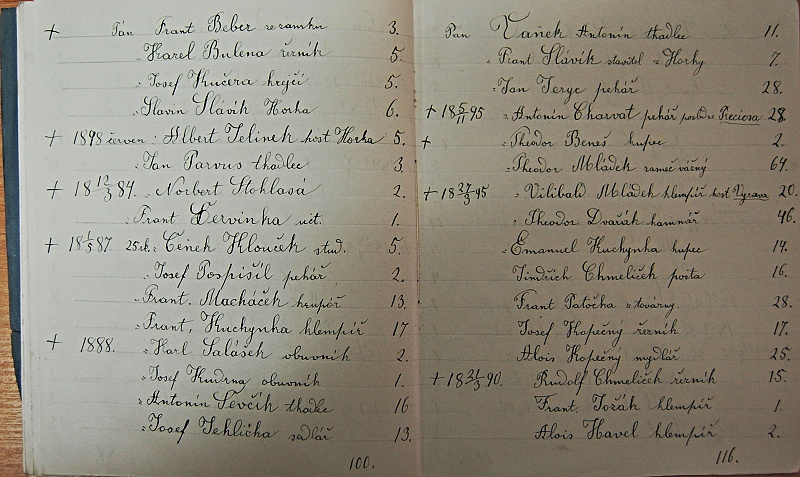 + Pán Frant Beber ze zamku 3.
" Karel Bulena řezník 5.
" Josef Kučera krejčí 5.
" Slavin Slávík Horka 6.
+ 1898 červen: Albert Jelinek host Horka 5.
" Jan Parvus tkadlec 3.
+ 18 12/3 84. " Norbert Stoklasá 2.
" Frant Červinka uct. 1.
+ 18 1/5 87 " Čeněk Klouček stud. 5.
" Josef Pospíšil pekář 2.
" Frant. Macháček krupář 13.
" Frant. Kuchynka klempíř 17
+ 1888. " Karl Salášek obuvník 2.
" Josef Kudrna obuvník 1.
" Antonín Ševčík tkadlec 16
" Josef Jehlička sedlář 13.
100.
Pán Vaňek Antonín tkadlec 11.
" Frant Slávík stavitel z Horky 7.
" Jan Terge pekář 28.
+ 18 5/11 95 " Antonín Charvat pekář Preciosa 28
+ " Theodor Beneš kupec 2.
" Theodor Mládek 64.
+ 18 27/3 95 " Vilibald Mládek klempíř host Vyrava 20.
" Theodor Dvařák kamnář 46.
" Emanuel Kuchynka kupec 14.
" Jindřich Chmelíček pošta 16.
" Frant Patočka z továrny. 28.
" Josef Kopečný řezník 17.
" Alois Kopečný mydlář 25.
+ 18 31/3 90. " Rudolf Chmelíček řezník 15.
" Frant. Tožák klempíř 1
" Alois Havel klempíř 2.
116.